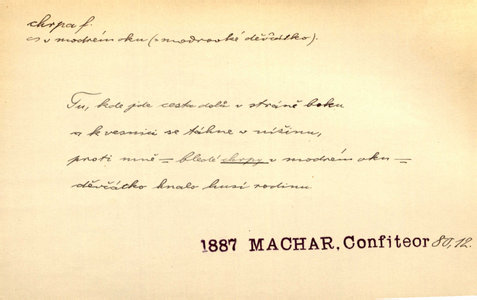 chrpa f.
v modrém oku (= modrooké děvčátko).
Tu, kde jde cesta dolů v stráně boku
a k vesnici se táhne v nížinu,
proti mně = bledé chrpy v modrém oku =
děvčátko hnalo husí rodinu
1887 MACHAR, Confiteor 80, 12.